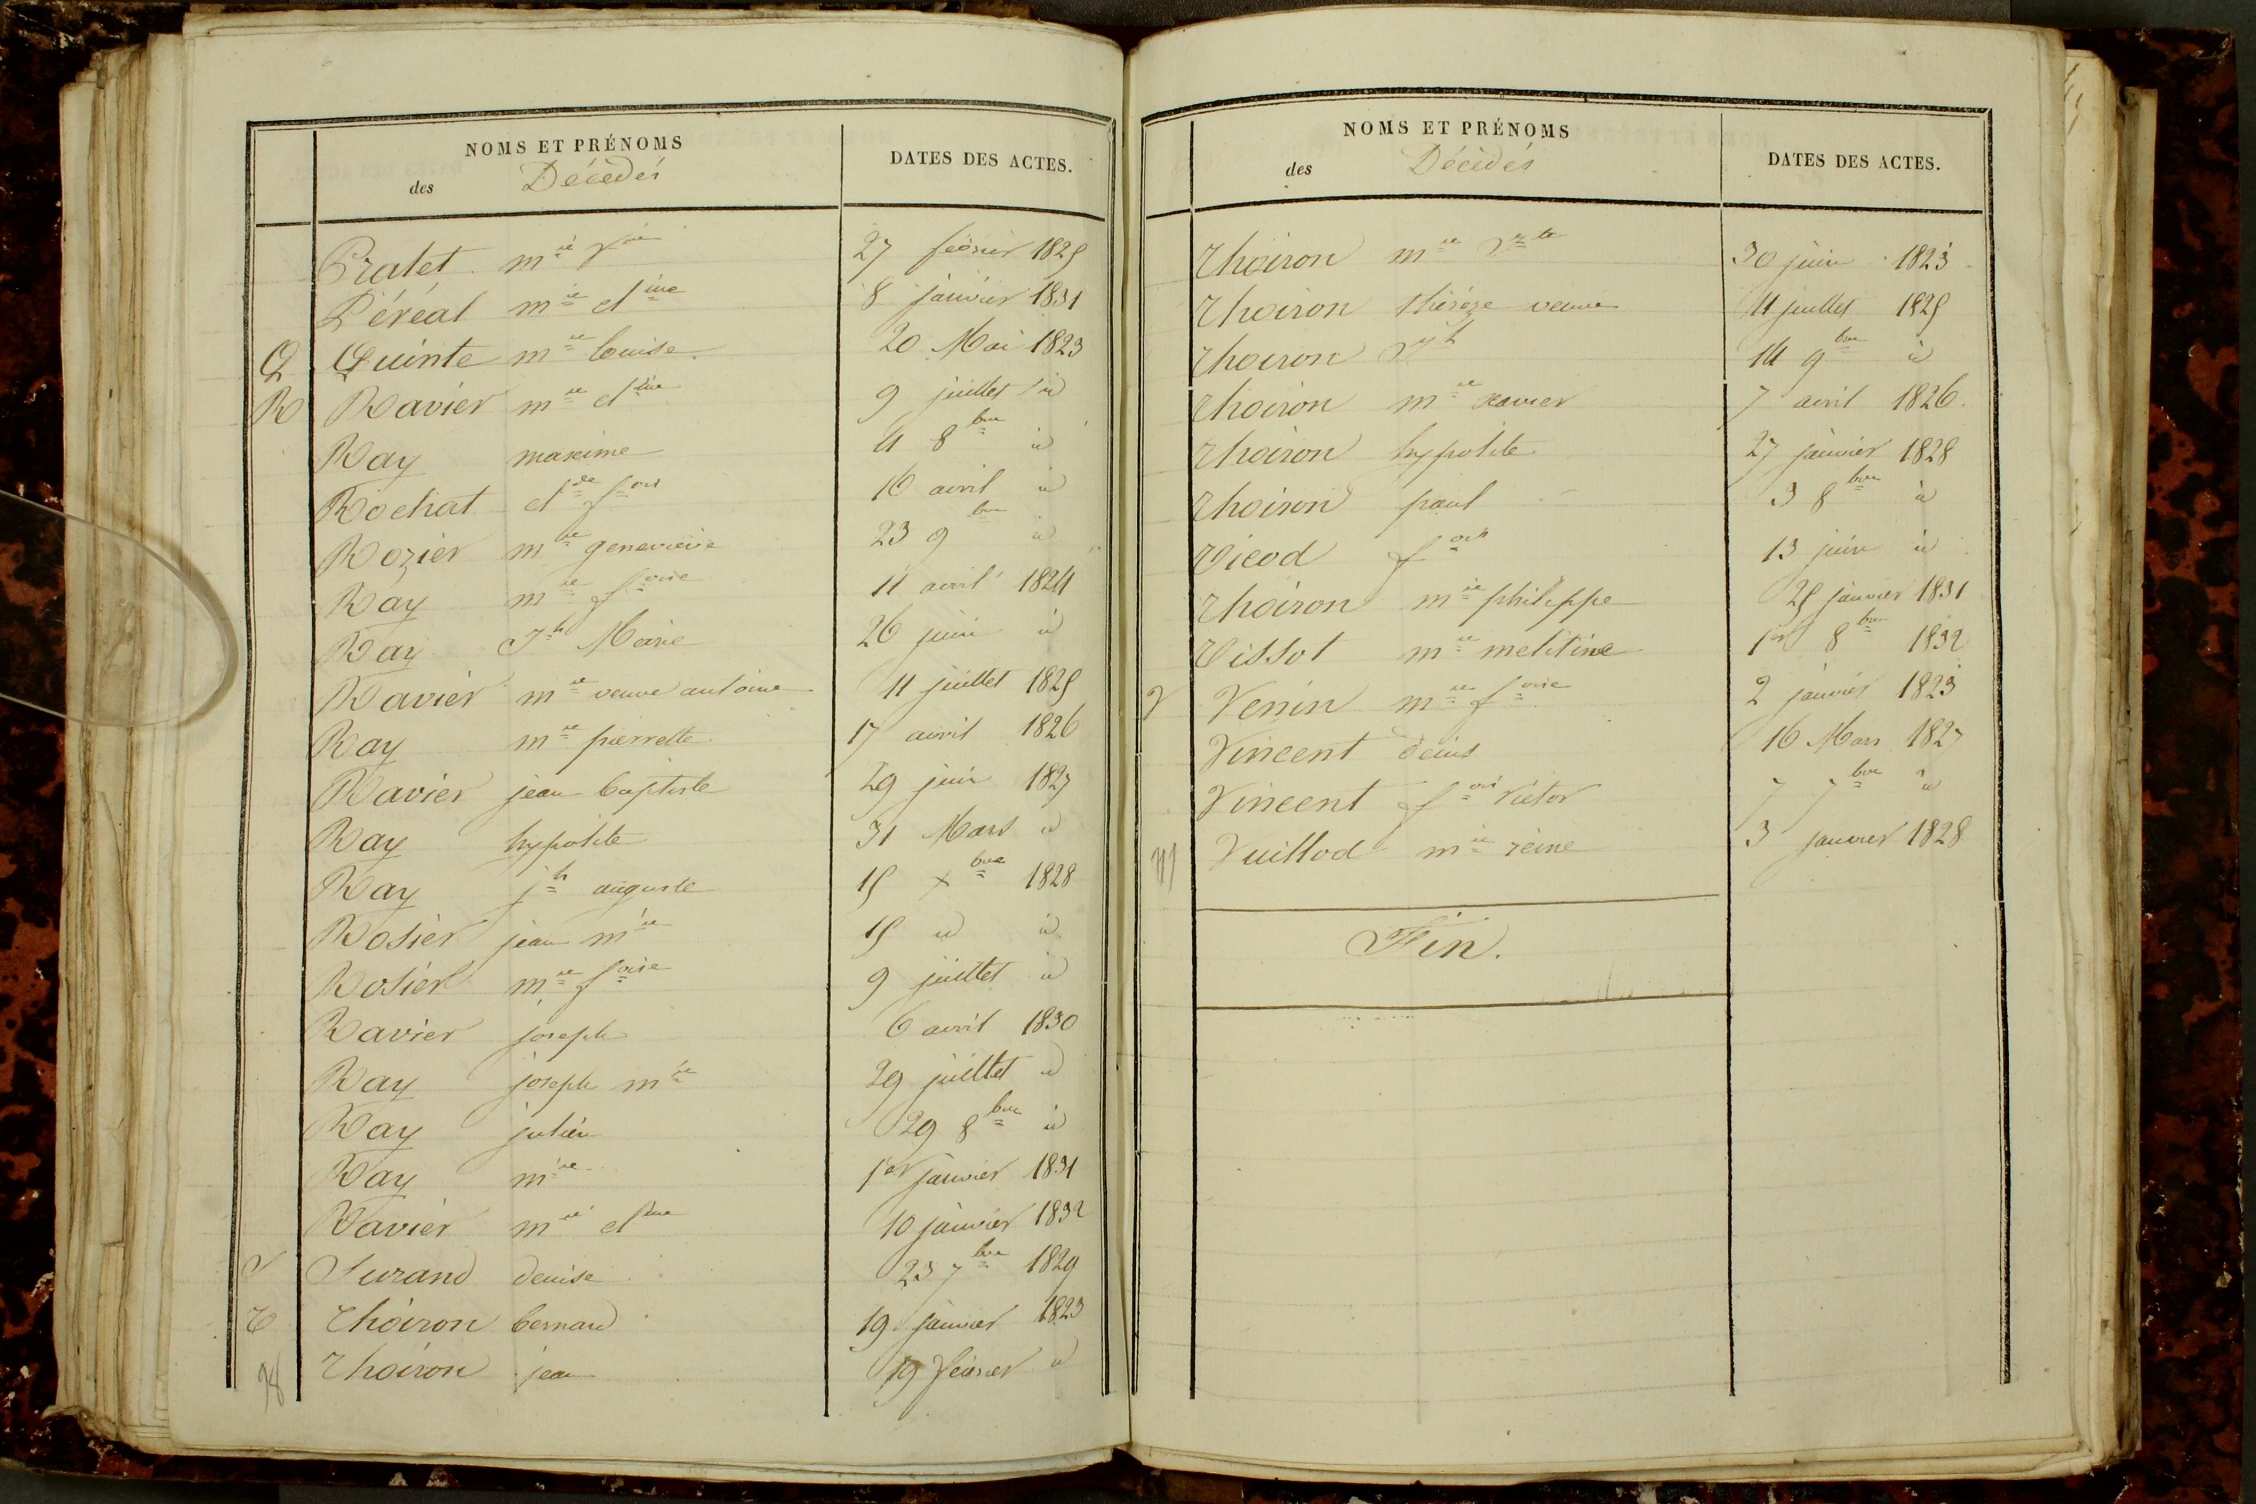 NOMS ET PRÉNOMS
des Décédés
DATES DES ACTES.
Pralet mie 27 février 1825
Péréal mie cline 8 janvier 1831
Q Quinte mie louise 20 Mai 1823
R Ravier mie cline 9 juillet id
Ray maxime 4 8bre id
Rochat cl de fois 16 avril id
Rozier mie genevieve 23 9bre id
Ray mie foise 11 avril 1824
Ray Jh Marie 26 juin id
Ravier mie veuve antoine 11 juillet 1825
Ray mie pierrette 17 avril 1826
Ravier jean baptiste 29 juin 1827
Ray hypolite 31 Mars id
Ray jh auguste 15 xbre 1828
Rosier jean mie 15 id id
Rosier mie foise 9 juillet id
Ravier joseph 6 avril 1830
Ray joseph mie 29 juillet id
Ray julien 29 8bre id
Ray mie 1er janvier 1831
Ravier mie cline 10 janvier 1832
S Surand denise 23 7bre 1829
T Thoiron bernard 19 janvier 1823
Thoiron jean 19 février id
NOMS ET PRÉNOMS
des Décédés
DATES DES ACTES.
Thoiron mie 30 juin 1823
Thoiron thérèze veuve 11 juillet 1825
Thoiron Jh 14 9bre id
Thoiron mie xavier 7 avril 1826
Thoiron hypolite 27 janvier 1828
Thoiron paul 3 8bre id
Ticod fois 13 juin id
Thoiron mie philippe 25 janvier 1831
Tissot mie melitine 1er 8bre 1832
V Venin mie foise 2 janvier 1823
Vincent denis 16 Mars 1827
Vincent fois victor 7 7bre id
Vuillod mie reine 3 janvier 1828
Fin.